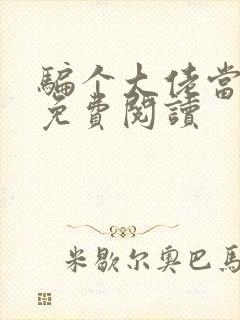 骗个大佬当
免費閱讀
米歇尔奥巴馬